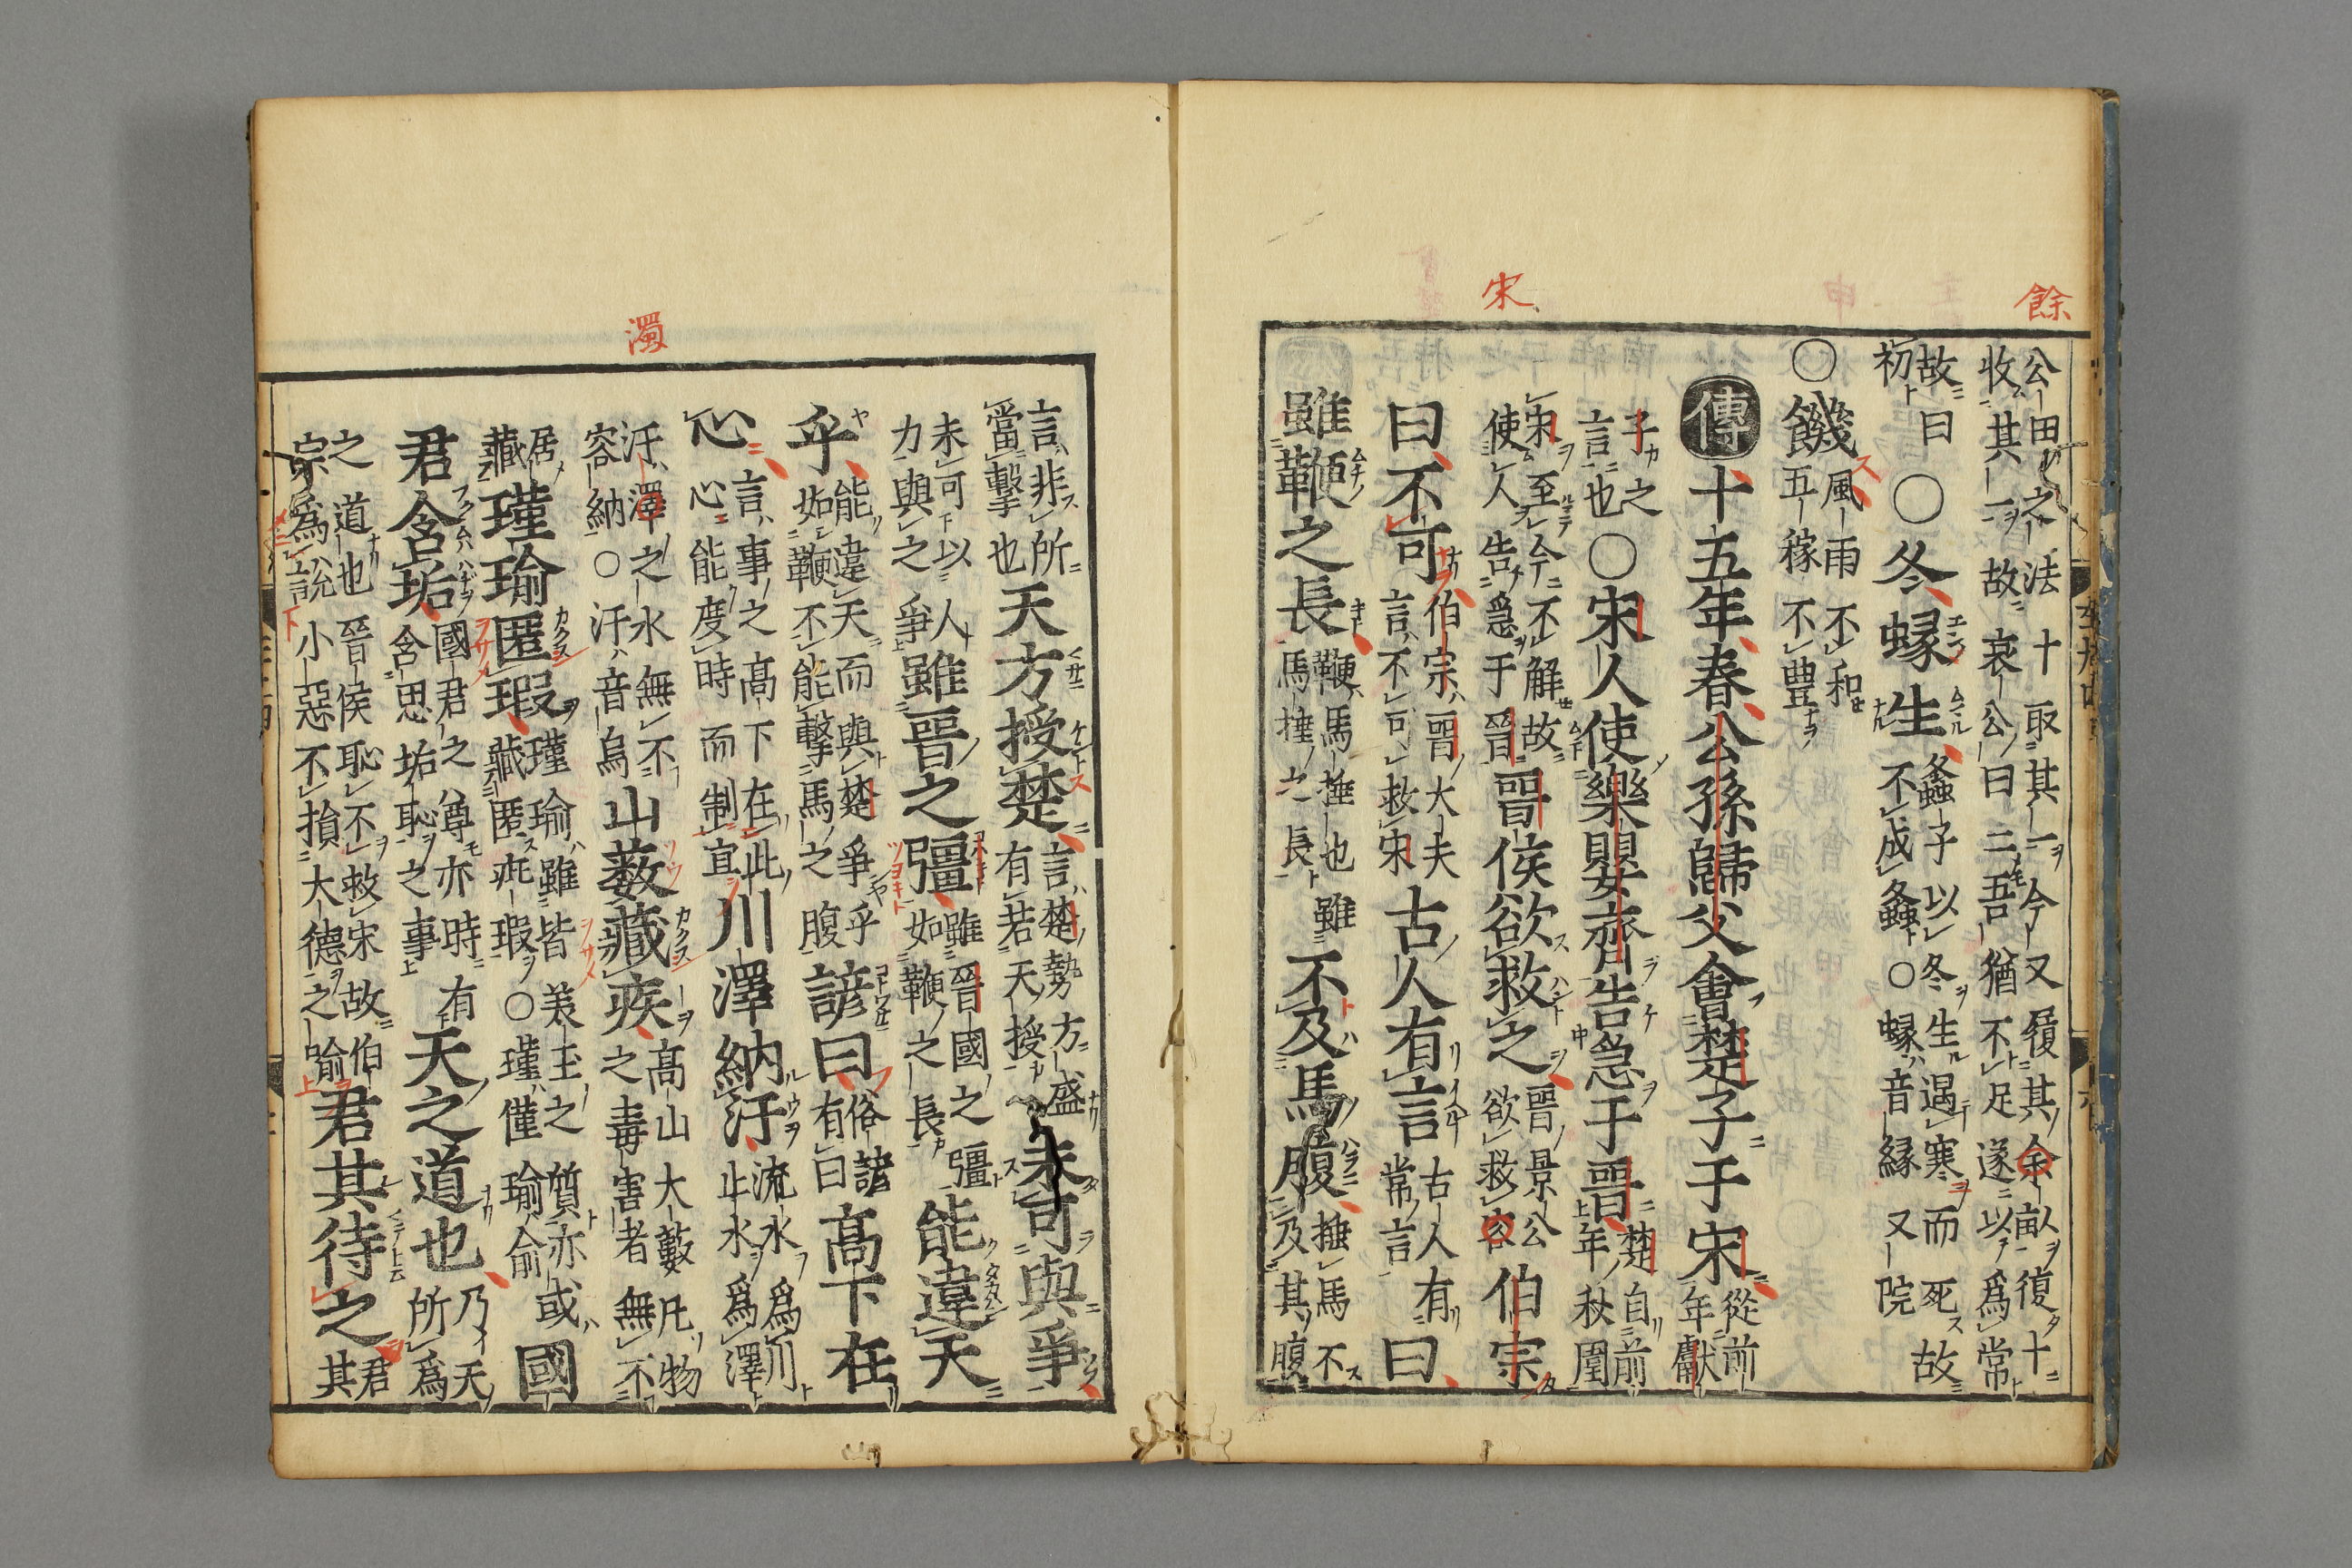 餘
宋
公田之法十取其一今又履其余畝復十
收其一故哀公曰二吾猶不足遂以爲常
故曰〇冬蝝生螽子以冬生遇寒而死故
初不成螽〇蝝音縁又院
〇饑風雨不和
五稼不豊
傳十五年春公孫歸父會楚子于宋從前
年獻
子之
言也〇宋人使樂嬰齊告急于晉楚自前
年秋圍
宋至今不解故
使人告急于晉晉侯欲救之晉景公
欲救宋伯宗
曰不可伯宗晉大夫
言不可救宋古人有言古人有
常言曰
雖鞭之長鞭馬捶也雖
馬捶之長不及馬腹捶馬不
及其腹
濁
言非所
當擊也天方授楚言楚勢方盛
有若天授未可與爭
未可以人
力與之爭雖晉之彊雖晉國之彊
如鞭之長能違天
乎能違天而與楚爭乎
如鞭不能擊馬之腹諺曰俗諺
有曰高下在
心言事之高下在此
心能度時而制宜川澤納汙流水爲川
止水爲澤
汙濁之水無不
容納〇汙音烏山藪藏疾高山大藪凡物
之毒害者無不
居
藏瑾瑜匿瑕瑾瑜雖皆美玉之質亦或
藏匿疵瑕〇瑾僅瑜俞國
君含垢國君之尊亦時有
含忍垢恥之事天之道也乃天
所爲
之道也晉侯恥不救宋故伯
宗爲說小惡不損大德之喻君其待之君
其